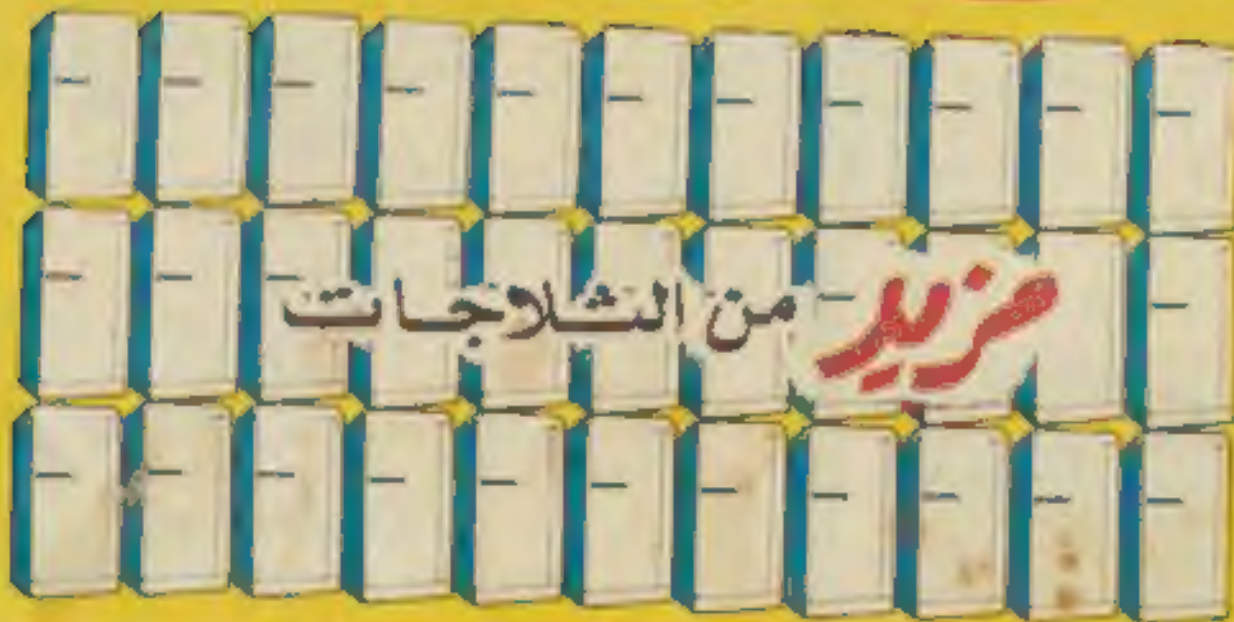 مزيد من الثلاجات